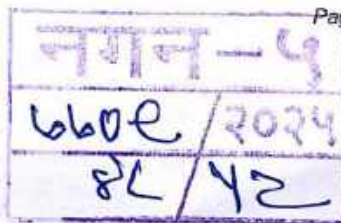 Pag
नगन - ५
७७०९ / २०२५
४८ / ५२